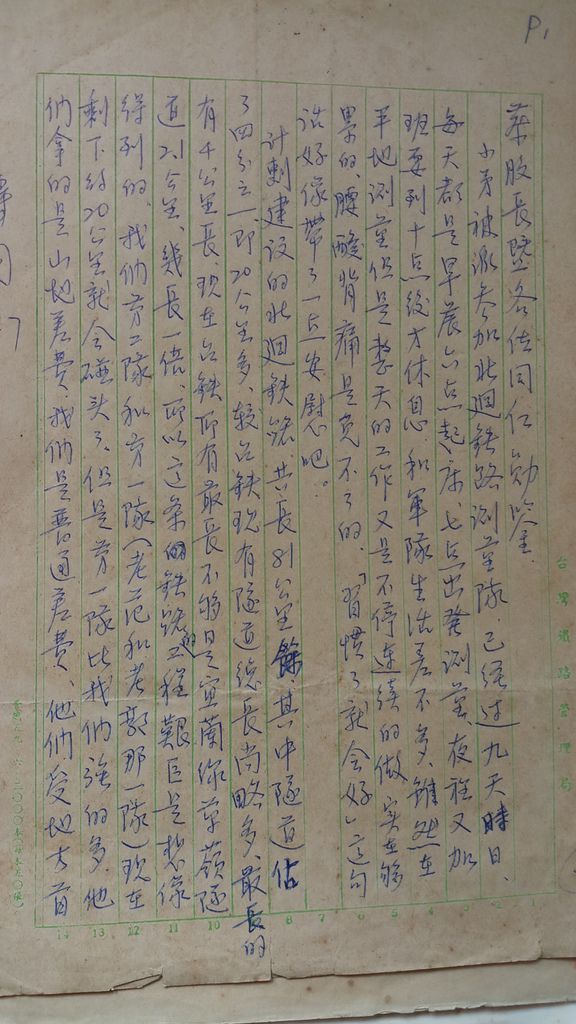 P1
蔡股長暨各位同仁勛鑒:
小弟被派参加北迴鉄路測量隊.已經过九天時日.
每天都是早晨六点起床.七点出發測量.夜裡又加
班要到十点後才休息.和軍隊生活差不多.雖然在
平地測量但是整天的工作又是不停連續的做.实在够
累的.腰酸背痛是免不了的.「習慣了就会好」這句
話好像帶了一点安慰吧。
計劃建設的北迴鉄路.共長81公里餘其中隧道佔
了四分之一.即20公里多、較台鉄現有隧道總長尚略多、最長的
有4公里長.現在台鉄所有最長不够是宜蘭線草嶺隧
道2.1公里、幾長一倍、所以這条鉄路的工程艱巨是想像
得到的.我們第二隊和第一隊(老范和老郭那一隊)現在
剩下約20公里就会碰头了.但是第一隊比我們強的多.他
們拿的是山地差費.我們是普通差費、他們受地方首
台灣鐵路管理局
2
3
4
5
6
7
8
9
10
11
12
13
14